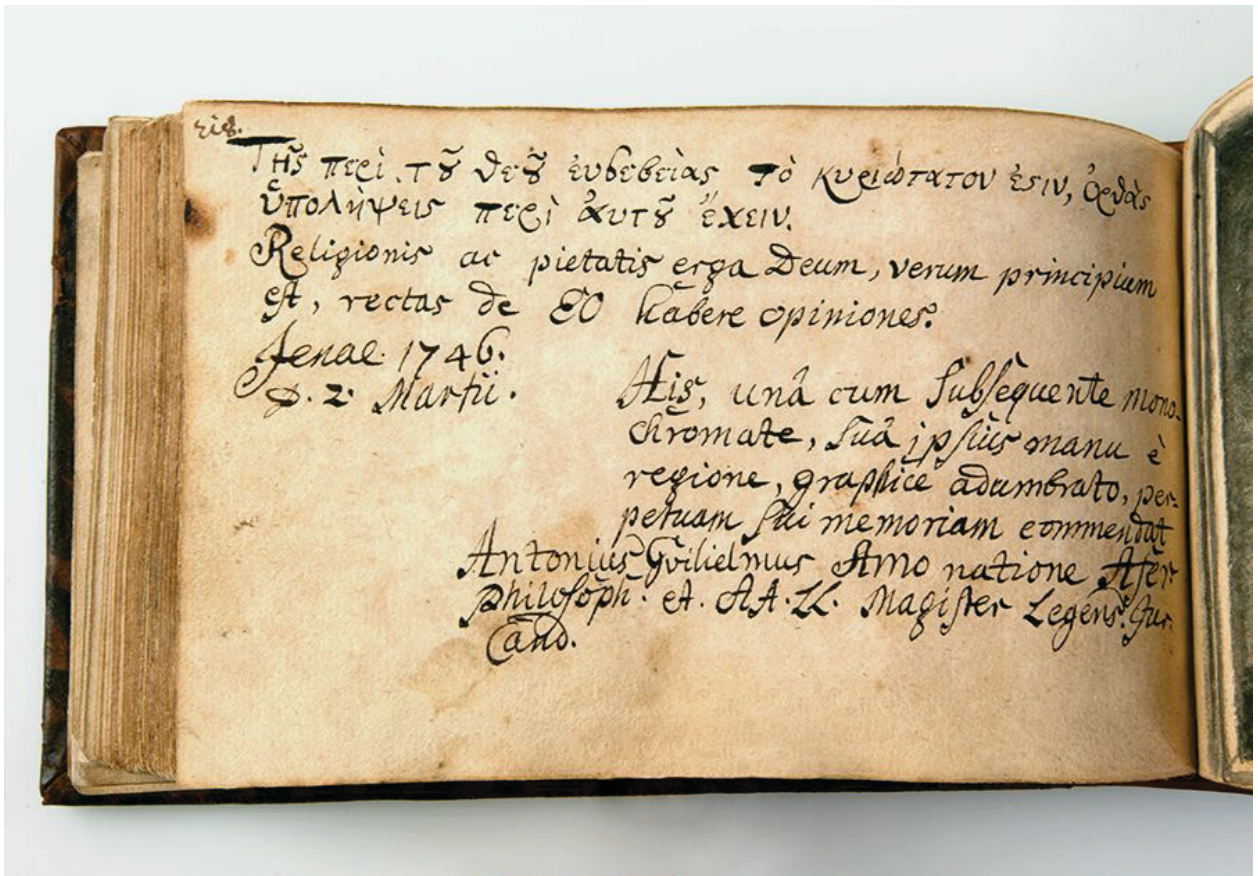 218.
Τῆς περὶ τȣ̃ θεȣ̃ ἐυσεβείας τὸ κυριώτατον ἐϛιν, ὀρθὰς
ὑπολήψεις περὶ ἀυτȣ̃ ἔχειν.
Religionis ac pietatis erga Deum, verum principium
est, rectas de EO habere opiniones.
Jenae. 1746.
D. 2. Martii.
His, unâ cum subsequente mono-
chromate, suâ ipsius manu è
regione, graphice adumbrato, per-
petuam sui memoriam commendat
Antonius Gvilielmus Amo natione Afer
Philosoph. et. AA. LL. Magister Legens. Jur.
Cand.